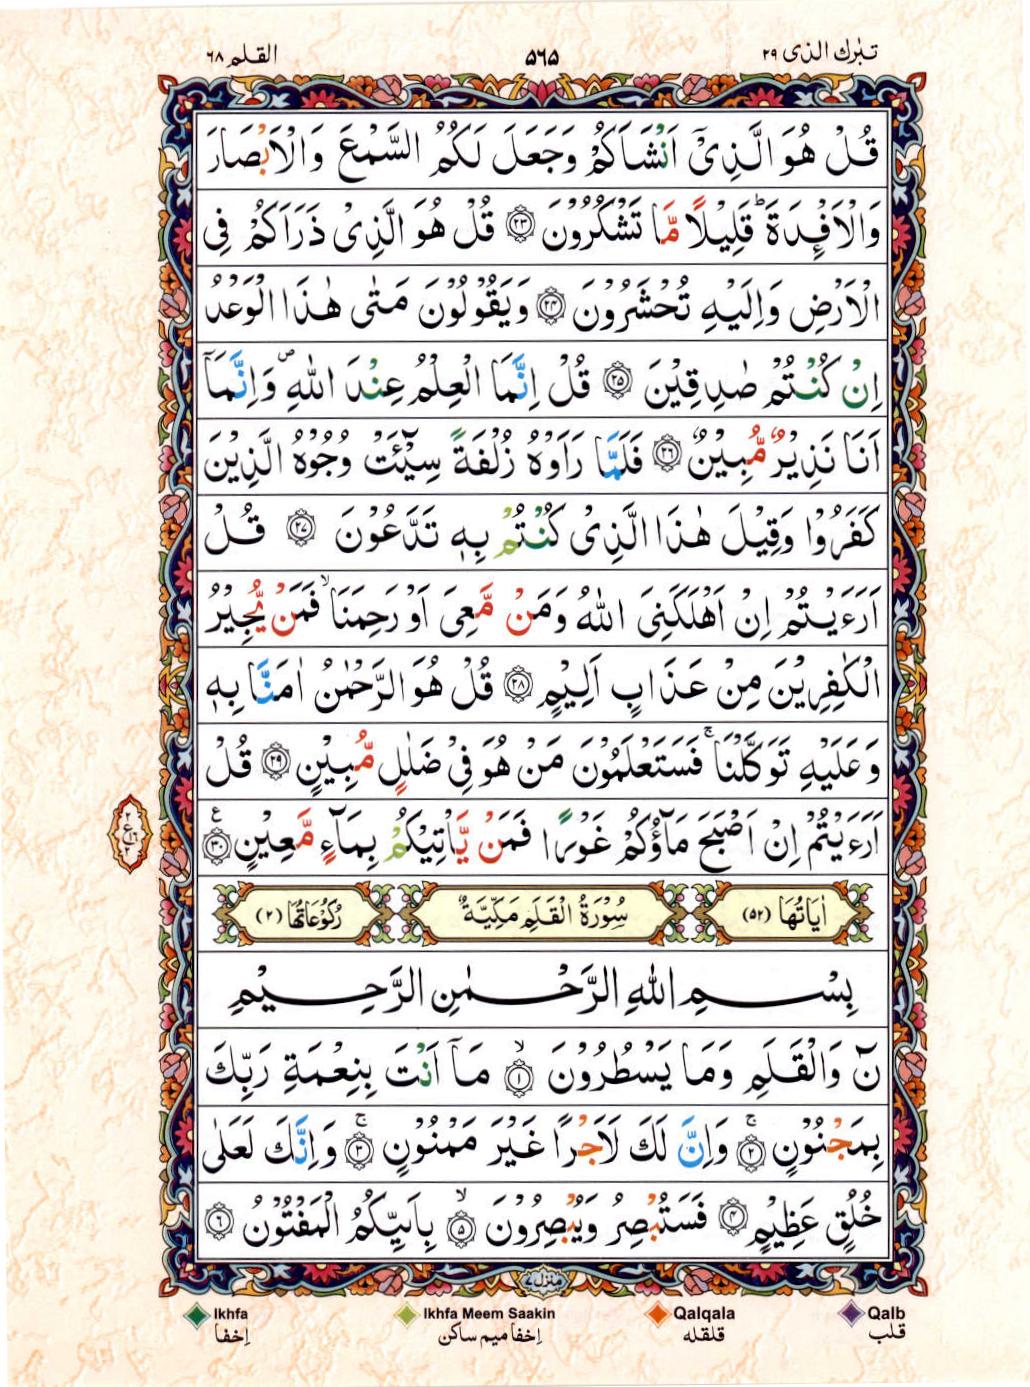 تبٰرك الذی ۲۹
۵۶۵
القلم ۶۸
قُلْ هُوَ الَّذِیْۤ اَنْشَاَكُمْ وَجَعَلَ لَكُمُ السَّمْعَ وَالْاَبْصَارَ
وَالْاَفْـِٕدَةَ ؕ قَلِیْلًا مَّا تَشْكُرُوْنَ ﴿۲۳﴾ قُلْ هُوَ الَّذِیْ ذَرَاَكُمْ فِی
الْاَرْضِ وَاِلَیْهِ تُحْشَرُوْنَ ﴿۲۴﴾ وَیَقُوْلُوْنَ مَتٰی هٰذَا الْوَعْدُ
اِنْ كُنْتُمْ صٰدِقِیْنَ ﴿۲۵﴾ قُلْ اِنَّمَا الْعِلْمُ عِنْدَ اللّٰهِ ۪ وَاِنَّمَاۤ
اَنَا نَذِیْرٌ مُّبِیْنٌ ﴿۲۶﴾ فَلَمَّا رَاَوْهُ زُلْفَةً سِیْٓـَٔتْ وُجُوْهُ الَّذِیْنَ
كَفَرُوْا وَقِیْلَ هٰذَا الَّذِیْ كُنْتُمْ بِهٖ تَدَّعُوْنَ ﴿۲۷﴾ قُلْ
اَرَءَیْتُمْ اِنْ اَهْلَكَنِیَ اللّٰهُ وَمَنْ مَّعِیَ اَوْ رَحِمَنَا ۙ فَمَنْ یُّجِیْرُ
الْكٰفِرِیْنَ مِنْ عَذَابٍ اَلِیْمٍ ﴿۲۸﴾ قُلْ هُوَ الرَّحْمٰنُ اٰمَنَّا بِهٖ
وَعَلَیْهِ تَوَكَّلْنَا ۚ فَسَتَعْلَمُوْنَ مَنْ هُوَ فِیْ ضَلٰلٍ مُّبِیْنٍ ﴿۲۹﴾ قُلْ
اَرَءَیْتُمْ اِنْ اَصْبَحَ مَآؤُكُمْ غَوْرًا فَمَنْ یَّاْتِیْكُمْ بِمَآءٍ مَّعِیْنٍ ﴿۳۰﴾ ع
اٰیَاتُهَا (۵۲)
سُوْرَةُ الْقَلَمِ مَكِّیَّةٌ
رُكُوْعَاتُهَا (۲)
بِسْمِ اللّٰهِ الرَّحْمٰنِ الرَّحِیْمِ
نٓ وَالْقَلَمِ وَمَا یَسْطُرُوْنَ ۙ ﴿۱﴾ مَاۤ اَنْتَ بِنِعْمَةِ رَبِّكَ
بِمَجْنُوْنٍ ۚ ﴿۲﴾ وَاِنَّ لَكَ لَاَجْرًا غَیْرَ مَمْنُوْنٍ ۚ ﴿۳﴾ وَاِنَّكَ لَعَلٰی
خُلُقٍ عَظِیْمٍ ﴿۴﴾ فَسَتُبْصِرُ وَیُبْصِرُوْنَ ۙ ﴿۵﴾ بِاَیِّىكُمُ الْمَفْتُوْنُ ﴿۶﴾
منزل ۷
Ikhfa
Ikhfa Meem Saakin
Qalqala
Qalb
اِخفا
اِخفا میم ساکن
قلقله
قلب